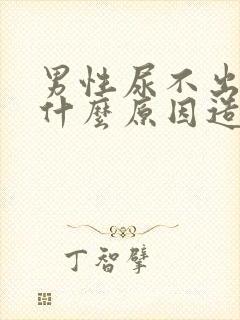 男性尿不出
什麼原因造
丁智擘